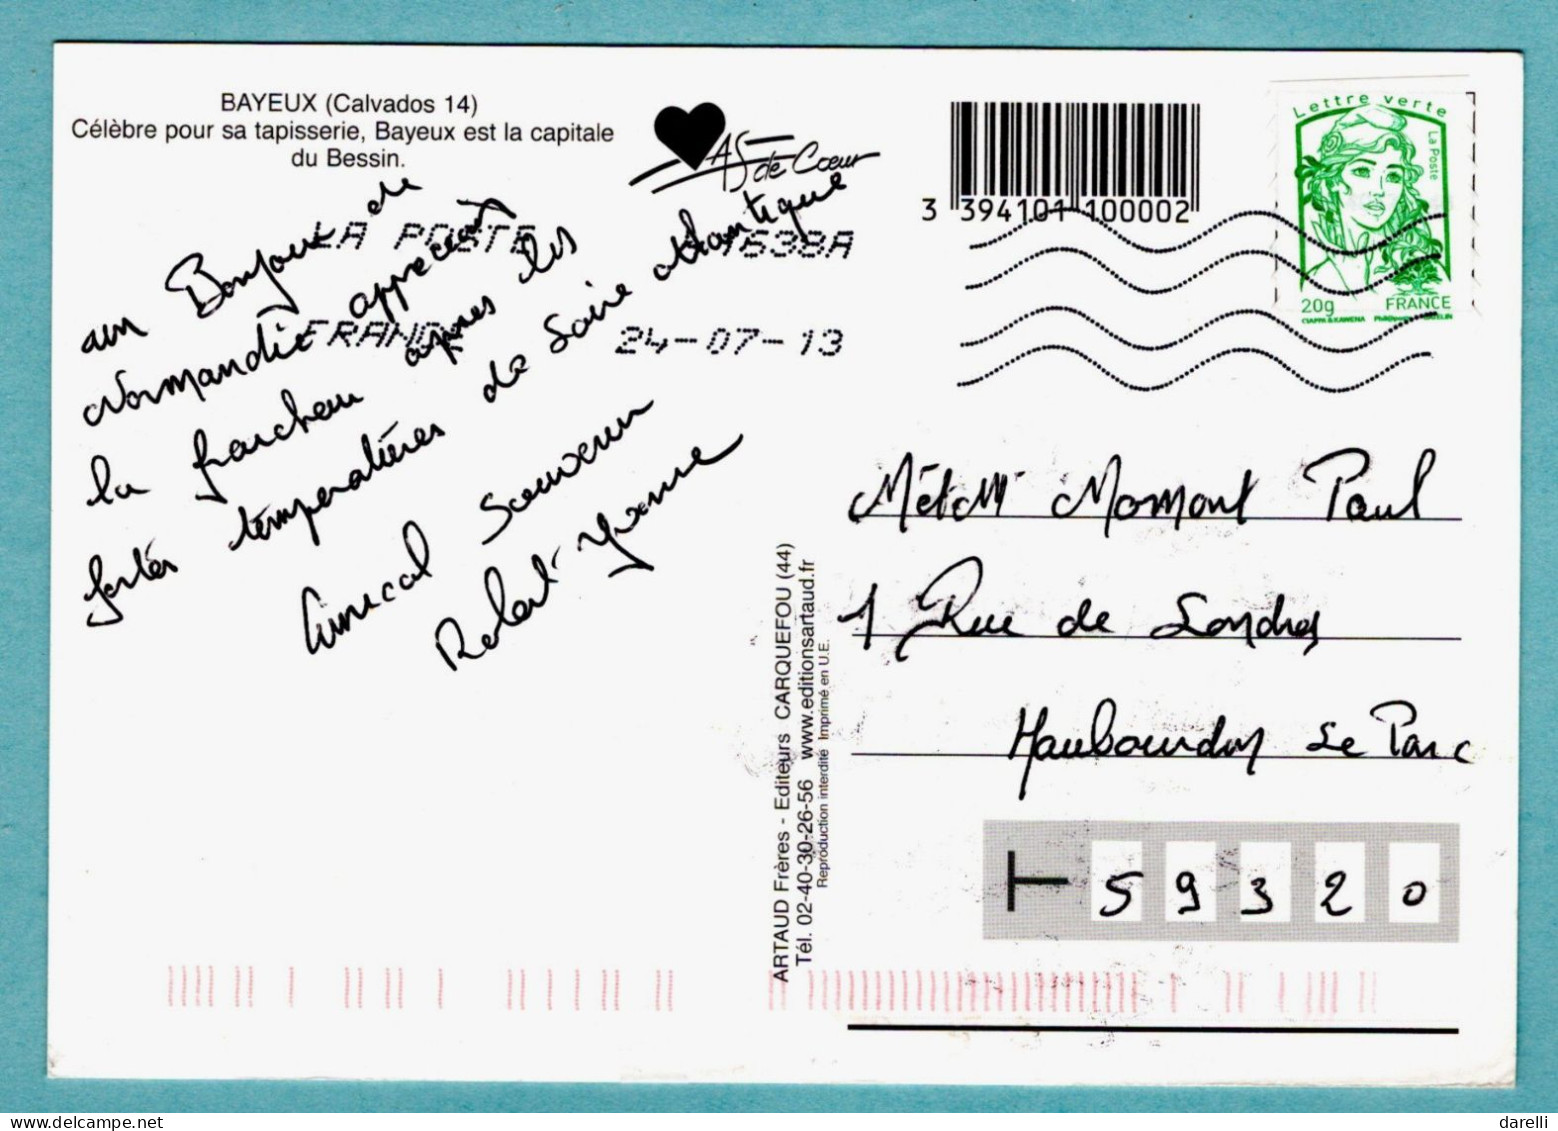 BAYEUX (Calvados 14)
Célèbre pour sa tapisserie, Bayeux est la capitale
du Bessin.
AS de Cœur
3 394101 100002
Lettre verte
La Poste
20g FRANCE
CIAPPA & KAWENA
LA POSTE 38A
FRANCE 24-07-13
un Bonjour de
Normandie appréciant
la fraicheur apres les
fortes températures de Loire Atlantique
Amical Souvenir
Robert Yvonne
Mr et Mme Momont Paul
1 Rue de Londres
Haubourdin Le Parc
59320
ARTAUD Frères - Editeurs CARQUEFOU (44)
Tél. 02-40-30-26-56 www.editionsartaud.fr
Reproduction interdite Imprimé en U.E.
darelli